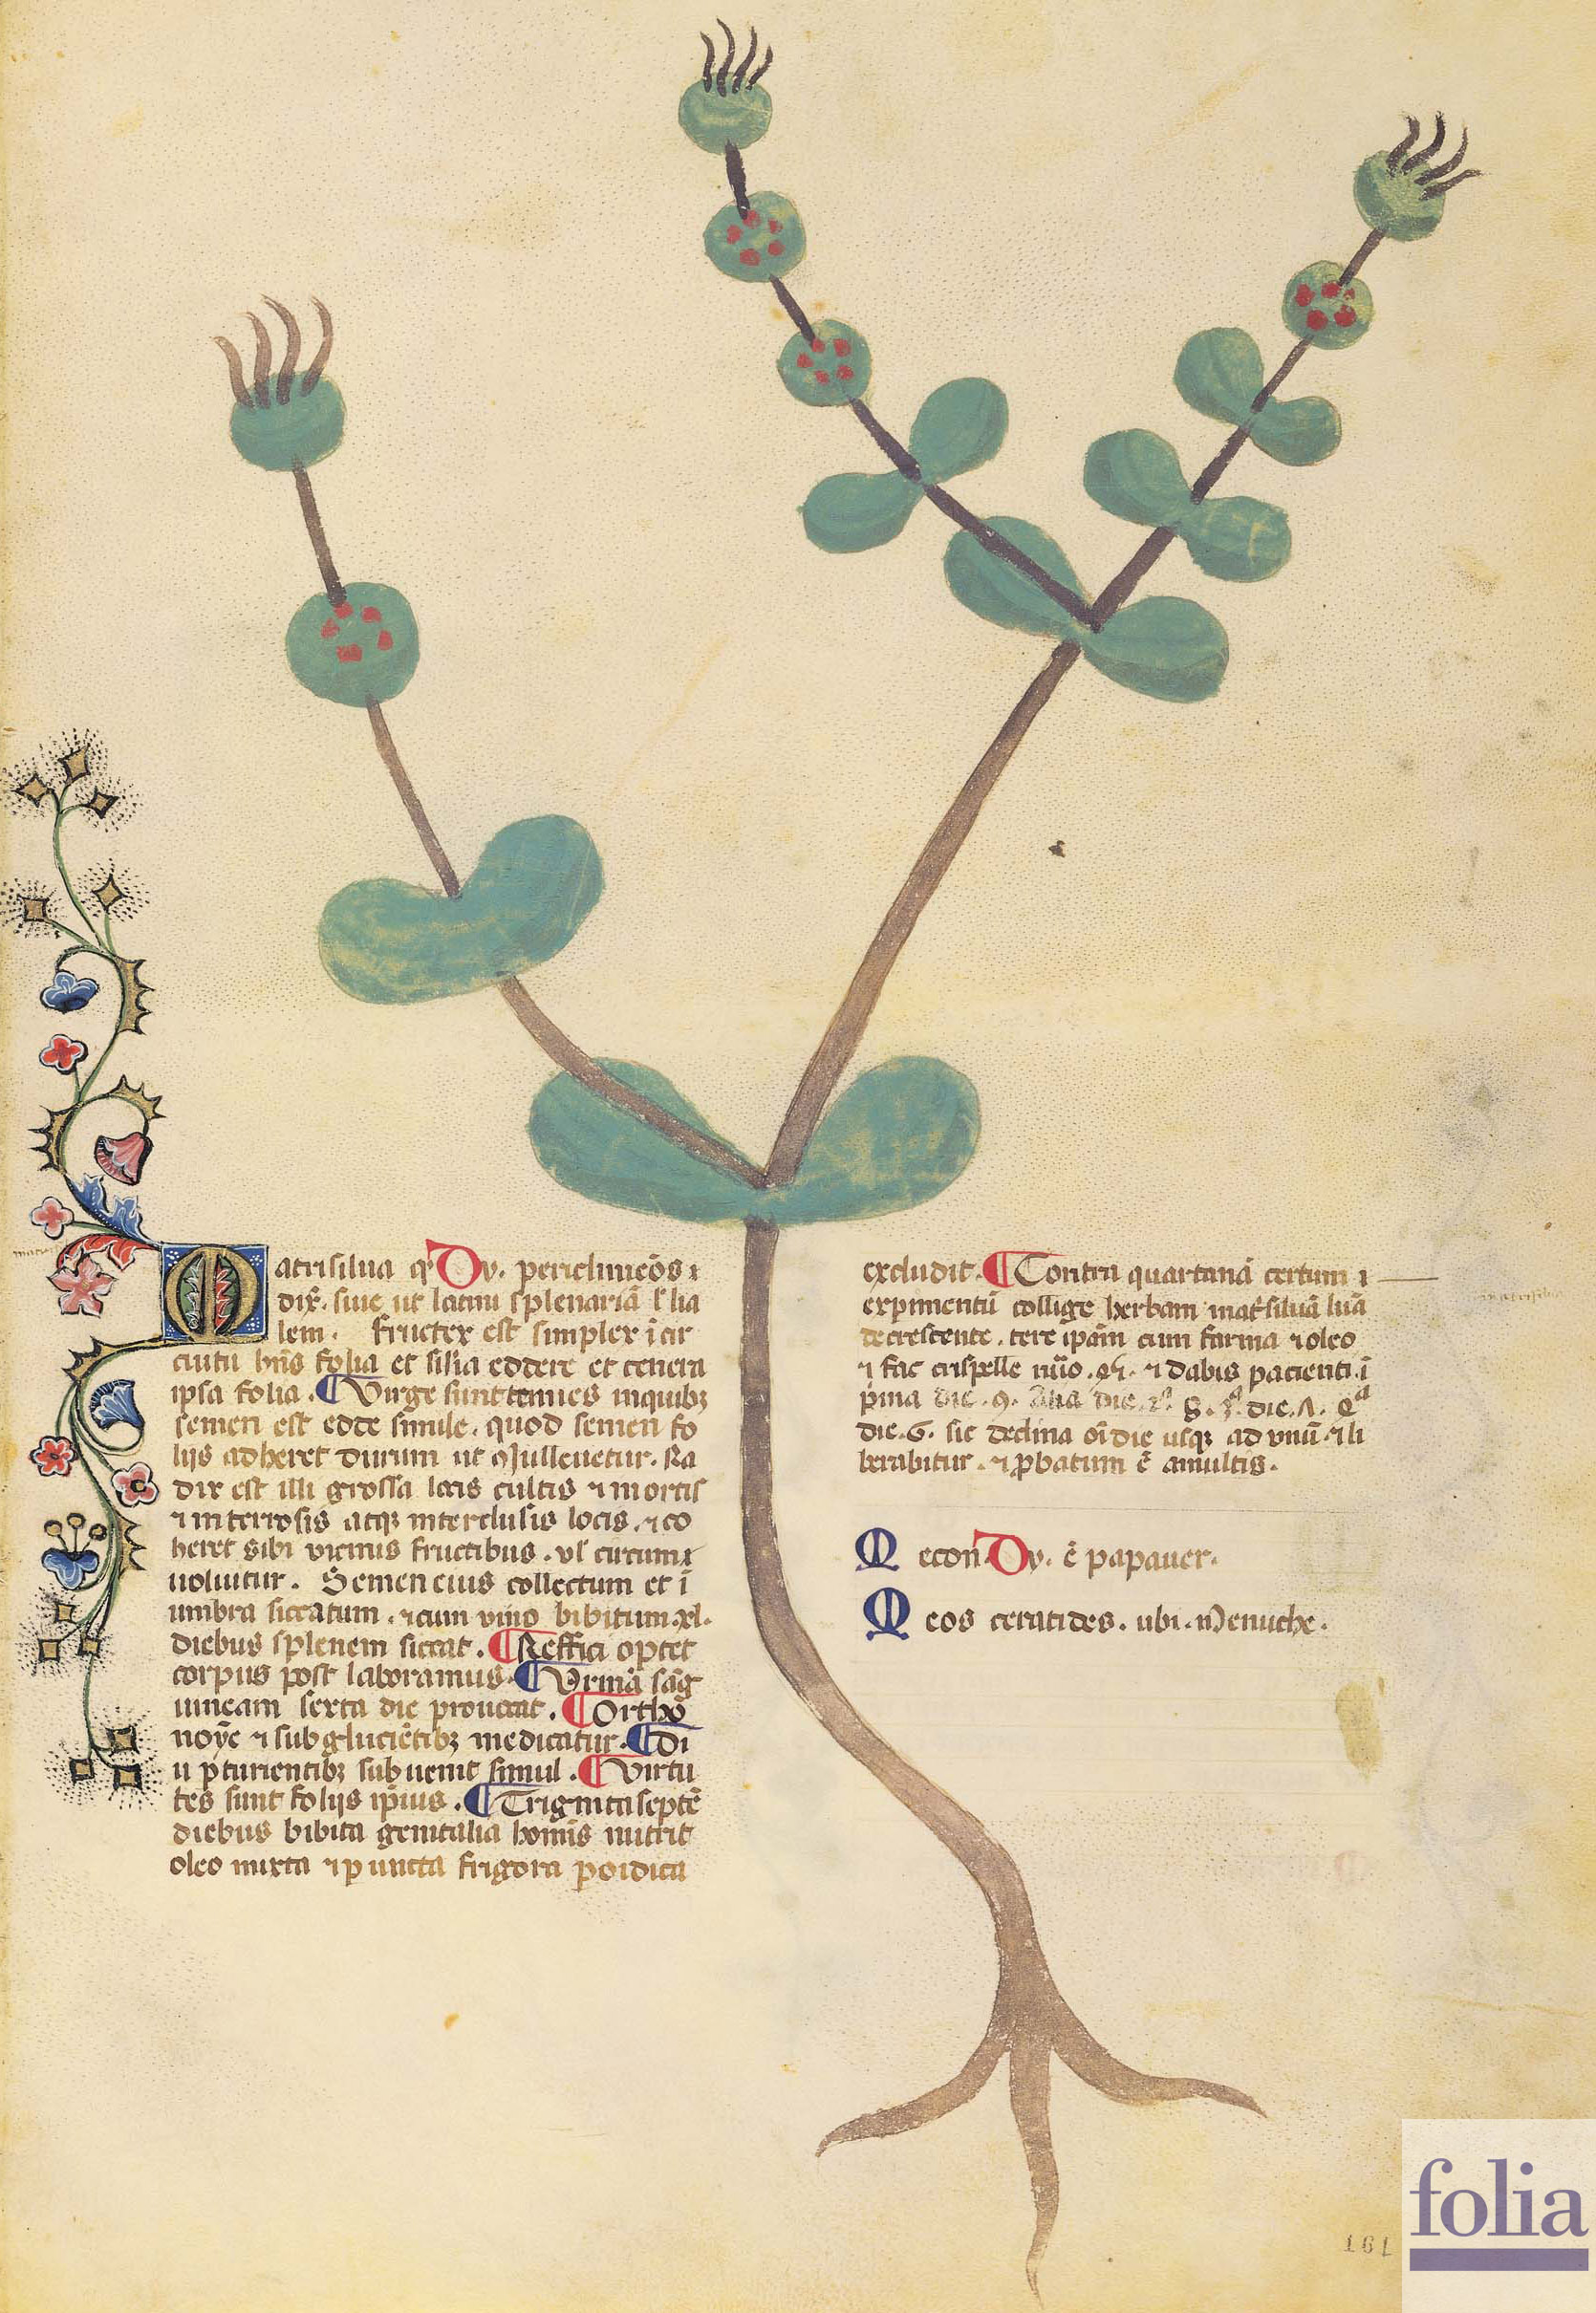 Matrisilua qͥ Dy. periclimeōs ⁊
dix̄. siue ut latini splenariā l' lia
lem. fructex est simplex ī cir
cuitu hn̄s folia et similia eddere et tenera
ipsa folia. ¶ Virge sunt tenues inquibꝫ
semen est edde simile. quod semen fo
lijs adheret durum ut euelletur. Ra
dix est illi grossa locis cultis ⁊
⁊ atqꝫ interclusis locis. ⁊ co
heret sibi vicinis fructibus. ul' circum
uoluitur. Semen eius collectum et ī
umbra siccatum. ⁊ cum vino bibitum .xl.
diebus splenem siccat. ¶ Reffici optet
corpus post laboramus. ¶ Vrinā sāg
uineam sexta die prouocat. ¶ Ortho
noyc̄ ⁊ subgluciētibꝫ medicatur. ¶ Di
u pturientibꝫ subuenit simul. ¶ Virtu
tes sunt folijs ip̄ius. ¶ Triginta septē
diebus bibita genitalia homīs nutrit
oleo mixta ⁊ puncta frigora poidica
excludit. ¶ Contra quartanā certum ⁊
expimentū collige herbam mat̄siluā lūa
decrescente. tere ipām cum farina ⁊ oleo
⁊ fac crispelle nūo. ⁊ dabis pacienti. ī
p̄ma die .9. Alia die. 8. 3ᵃ. die .Λ. 4ᵃ
die .6. sic declina oī die usqꝫ ad unū. ⁊ li
berabitur. ⁊ p̱batum ē amultis.
Mecon. Dy. ē papauer.
Meos ceratides. ubi. Menuche.
161
folia